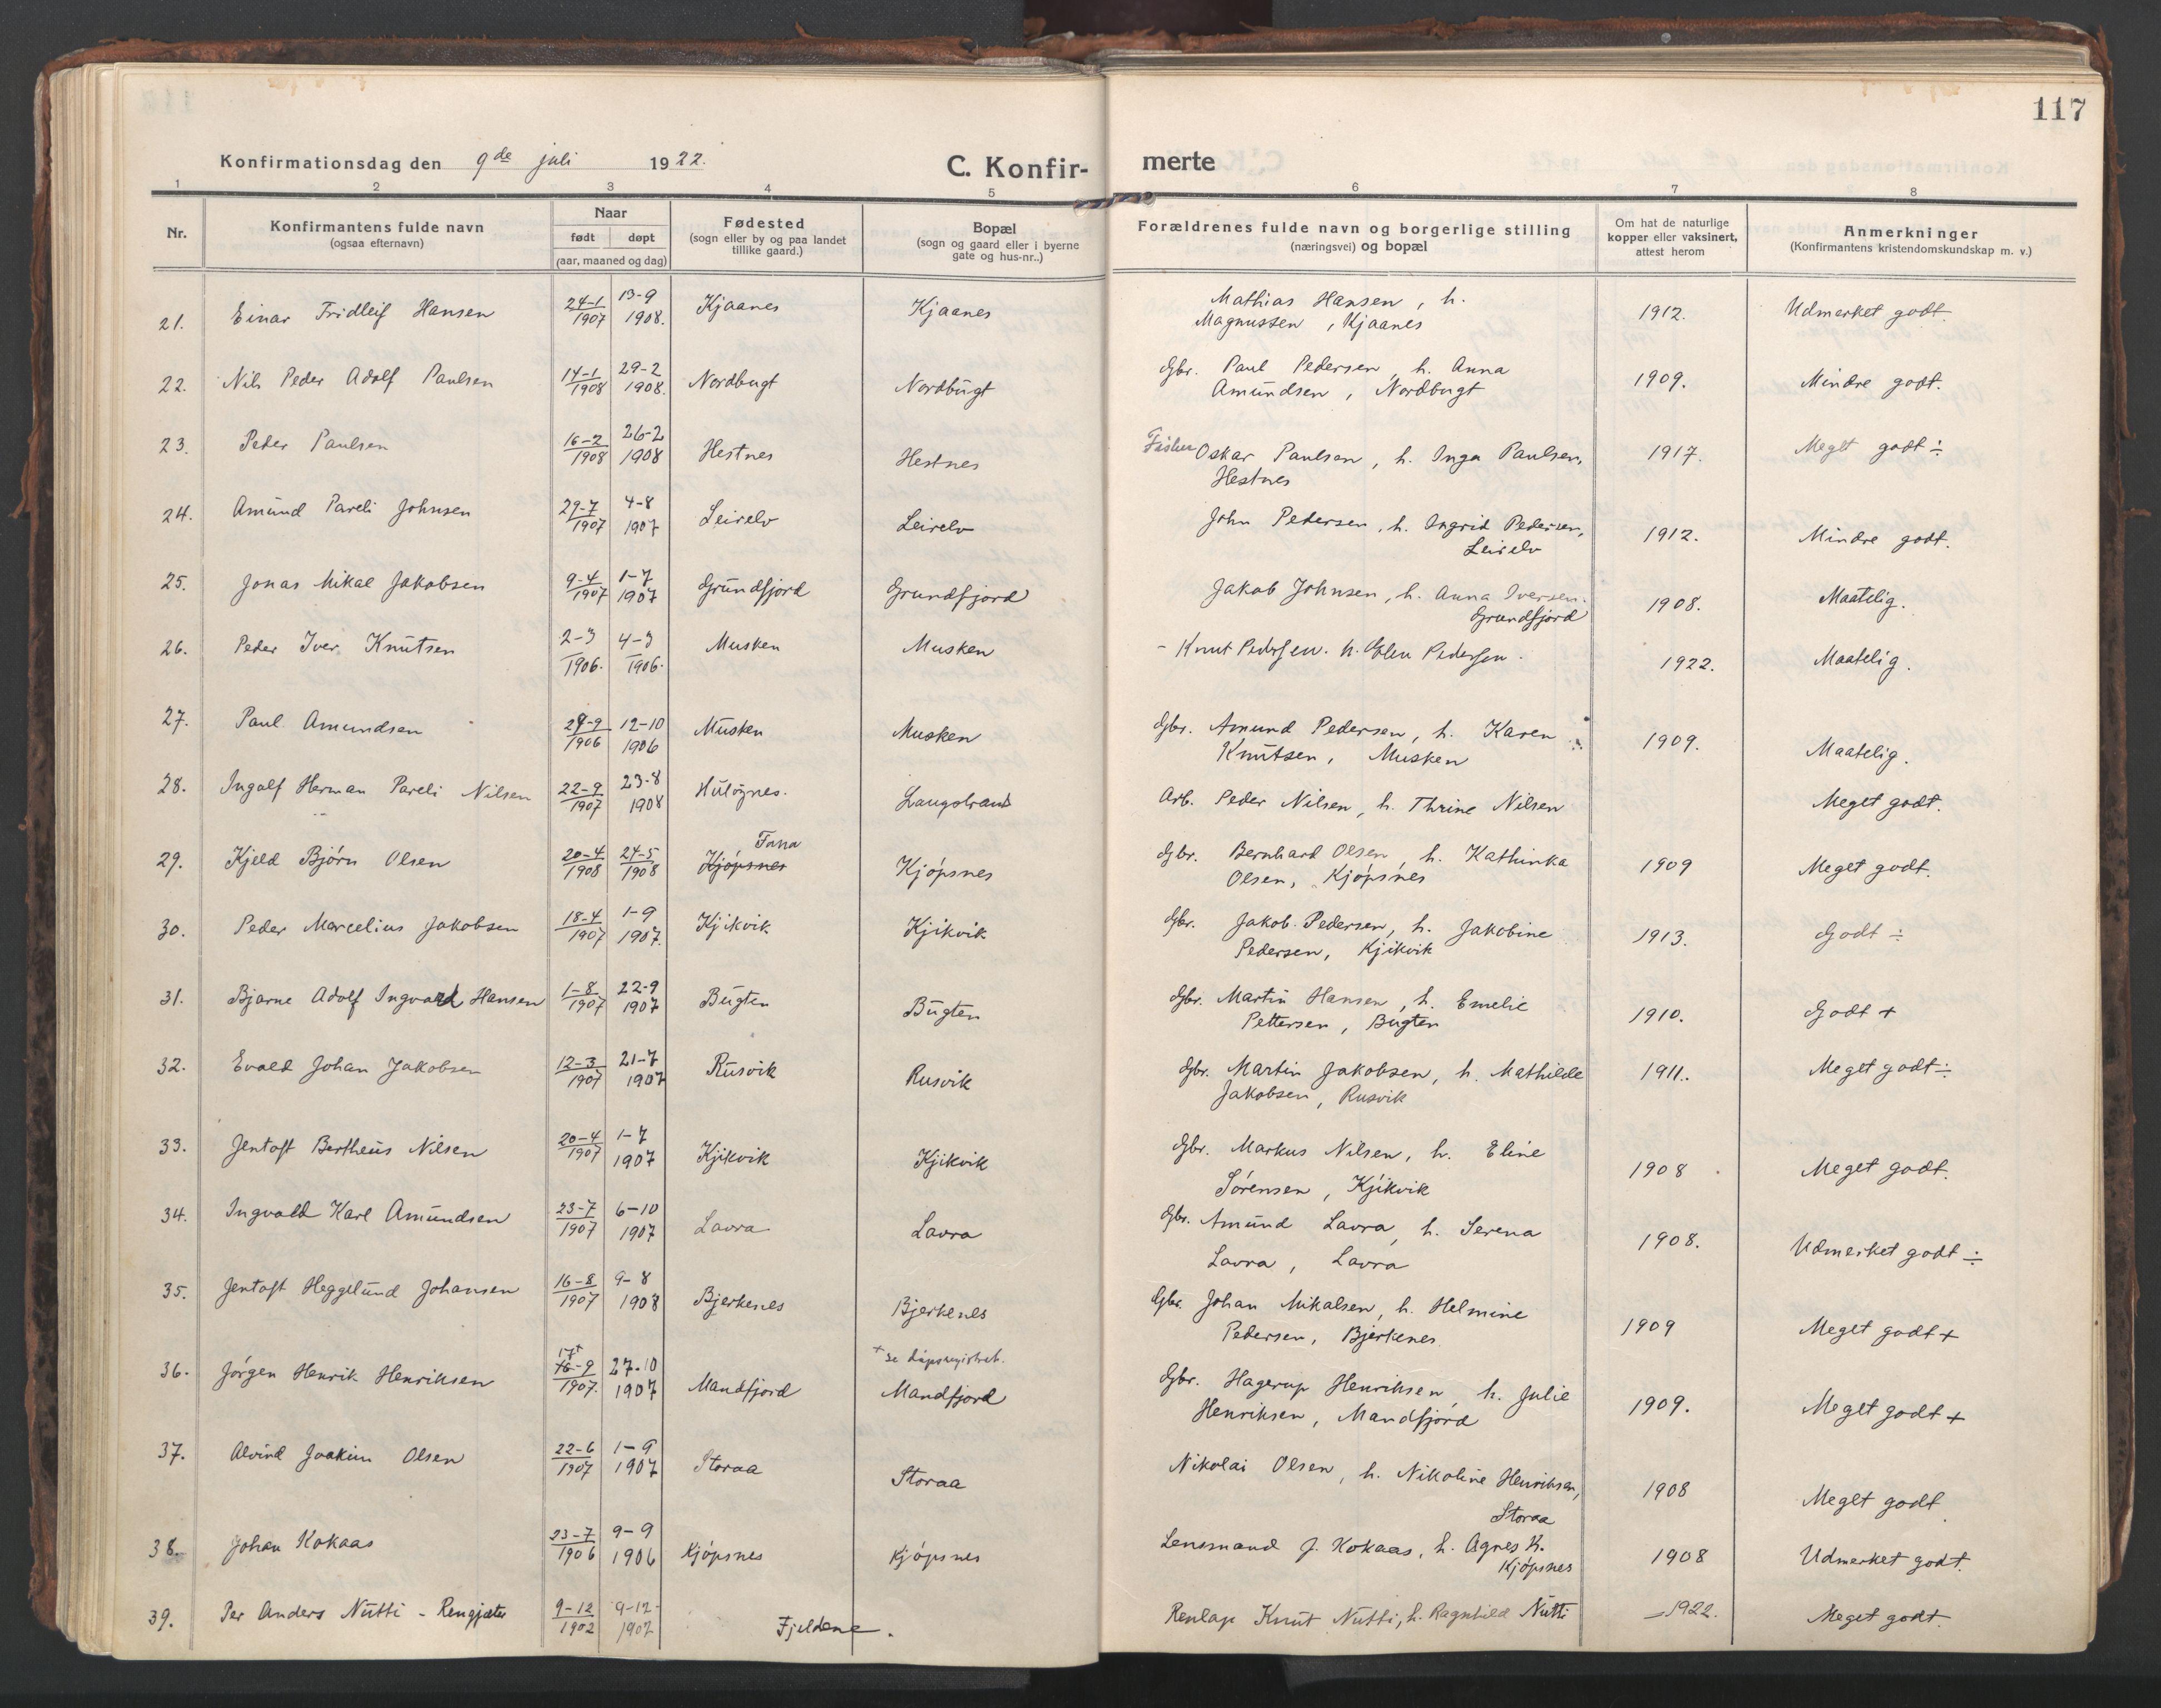 117
Konfirmationsdag den 9de juli 1922.
C. Konfir-
merte
1 2 3 4 5 6 7 8
Nr.
Konfirmantens fulde navn
(ogsaa efternavn)
Naar
født døpt
(aar, maaned og dag)
Fødested
(sogn eller by og paa landet
tillike gaard.)
Bopæl
(sogn og gaard eller i byerne
gate og hus-nr..)
Forældrenes fulde navn og borgerlige stilling
(næringsvei) og bopæl
Om hat de naturlige
kopper eller vaksinert,
attest herom
Anmerkninger
(Konfirmantens kristendomskundskap m. v.)
21. Einar Fridleif Hansen 24-1 1907 13-9 1908. Kjaanes Kjaanes Mathias Hansen, h. 1912. Udmerket godt.
Magnussen, Kjaanes
22. Nils Peder Adolf Paulsen 14-1 1908 29-2 1908. Nordbugt Nordbugt Gbr. Paul Pedersen, h. Anna 1909. Mindre godt.
Amundsen, Nordbugt
23. Peder Paulsen 16-2 1908 26-2 1908 Hestnes Hestnes Fisker Oskar Paulsen, h. Inga Paulsen, 1917. Meget godt ÷
Hestnes
24. Amund Pareli Johnsen 29-7 1907 4-8 1907 Leirelv Leirelv John Pedersen, h. Ingrid Pedersen, 1912. Mindre godt.
Leirelv
25. Jonas Mikal Jakobsen 9-4 1907 1-7 1907 Grundfjord Grundfjord Jakob Johnsen, h. Anna Iversen. 1908. Maatelig.
Grundfjord
26. Peder Iver Knutsen 2-3 1906. 4-3 1906. Musken Musken - Knut Pedersen. h. Elen Pedersen. 1922. Maatelig.
27. Paul Amundsen 29-9 1906 12-10 1906 Musken Musken Gbr. Amund Pedersen, h. Karen 1909. Maatelig.
Knutsen, Musken
28. Ingolf Herman Pareli Nilsen 22-9 1907 23-8 1908 Huløynes. Langstrand Arb. Peder Nilsen, h. Thrine Nilsen Meget godt.
Tana
29. Kjeld Bjørn Olsen 20-4 1908 24-5 1908 Kjøpsnes Kjøpsnes Gbr. Bernhard Olsen, h. Kathinka 1909 Meget godt.
Olsen, Kjøpsnes
30. Peder Marcelius Jakobsen 18-4 1907 1-9 1907. Kjikvik Kjikvik Gbr. Jakob Pedersen, h. Jakobine 1913. Godt ÷
Pedersen, Kjikvik
31. Bjarne Adolf Ingvard Hansen 1-8 1907 22-9 1907 Bugten Bugten Gbr. Martin Hansen, h. Emelie 1910. Godt +
Pettersen, Bugten
32. Evald Johan Jakobsen 12-3 1907 21-7 1907 Rusvik Rusvik Gbr. Martin Jakobsen, h. Mathilde 1911. Meget godt ÷
Jakobsen, Rusvik
33. Jentoft Bertheus Nilsen 20-4 1907 1-7 1907 Kjikvik Kjikvik Gbr. Markus Nilsen, h. Eline 1908 Meget godt.
Sørensen, Kjikvik
34. Ingvald Karl Amundsen 23-7 1907 6-10 1907 Lavra Lavra Gbr. Amund Lavra, h. Serena 1908. Udmerket godt ÷
Lavra, Lavra
35. Jentoft Heggelund Johansen 16-8 1907 9-8 1908 Bjerkenes Bjerkenes Gbr. Johan Mikalsen, h. Helmine 1909 Meget godt +
Pedersen, Bjerkenes
17+ + se dåpsregistret.
36. Jørgen Henrik Henriksen 16-9 1907. 27-10 1907 Mandfjord Mandfjord Gbr. Hagerup Henriksen, h. Julie 1909. Meget godt +
Henriksen, Mandfjord
37. Alvind Joakim Olsen 22-6 1907 1-9 1907 Storaa Storaa Nikolai Olsen, h. Nikoline Henriksen, 1908 Meget godt
Storaa
38. Johan Kokaas 23-7 1906 9-9 1906 Kjøpsnes Kjøpsnes Lensmand J. Kokaas, h. Agnes K. 1908 Udmerket godt.
Kjøpsnes
39. Per Anders Nutti - Rengjæter 9-12 1902 9-12- 1902 Fjeldene. Renlap Knut Nutti, h. Ragnhild Nutti - 1922. Meget godt.